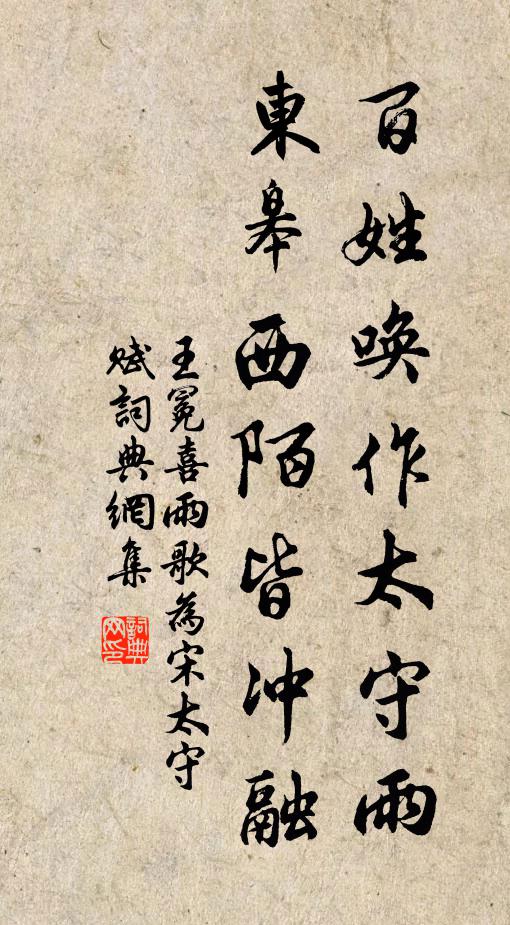 百姓唤作太守雨
東皋西陌皆冲融
王冕喜雨歌為宋太守
賦詞典網集
詞典
网印